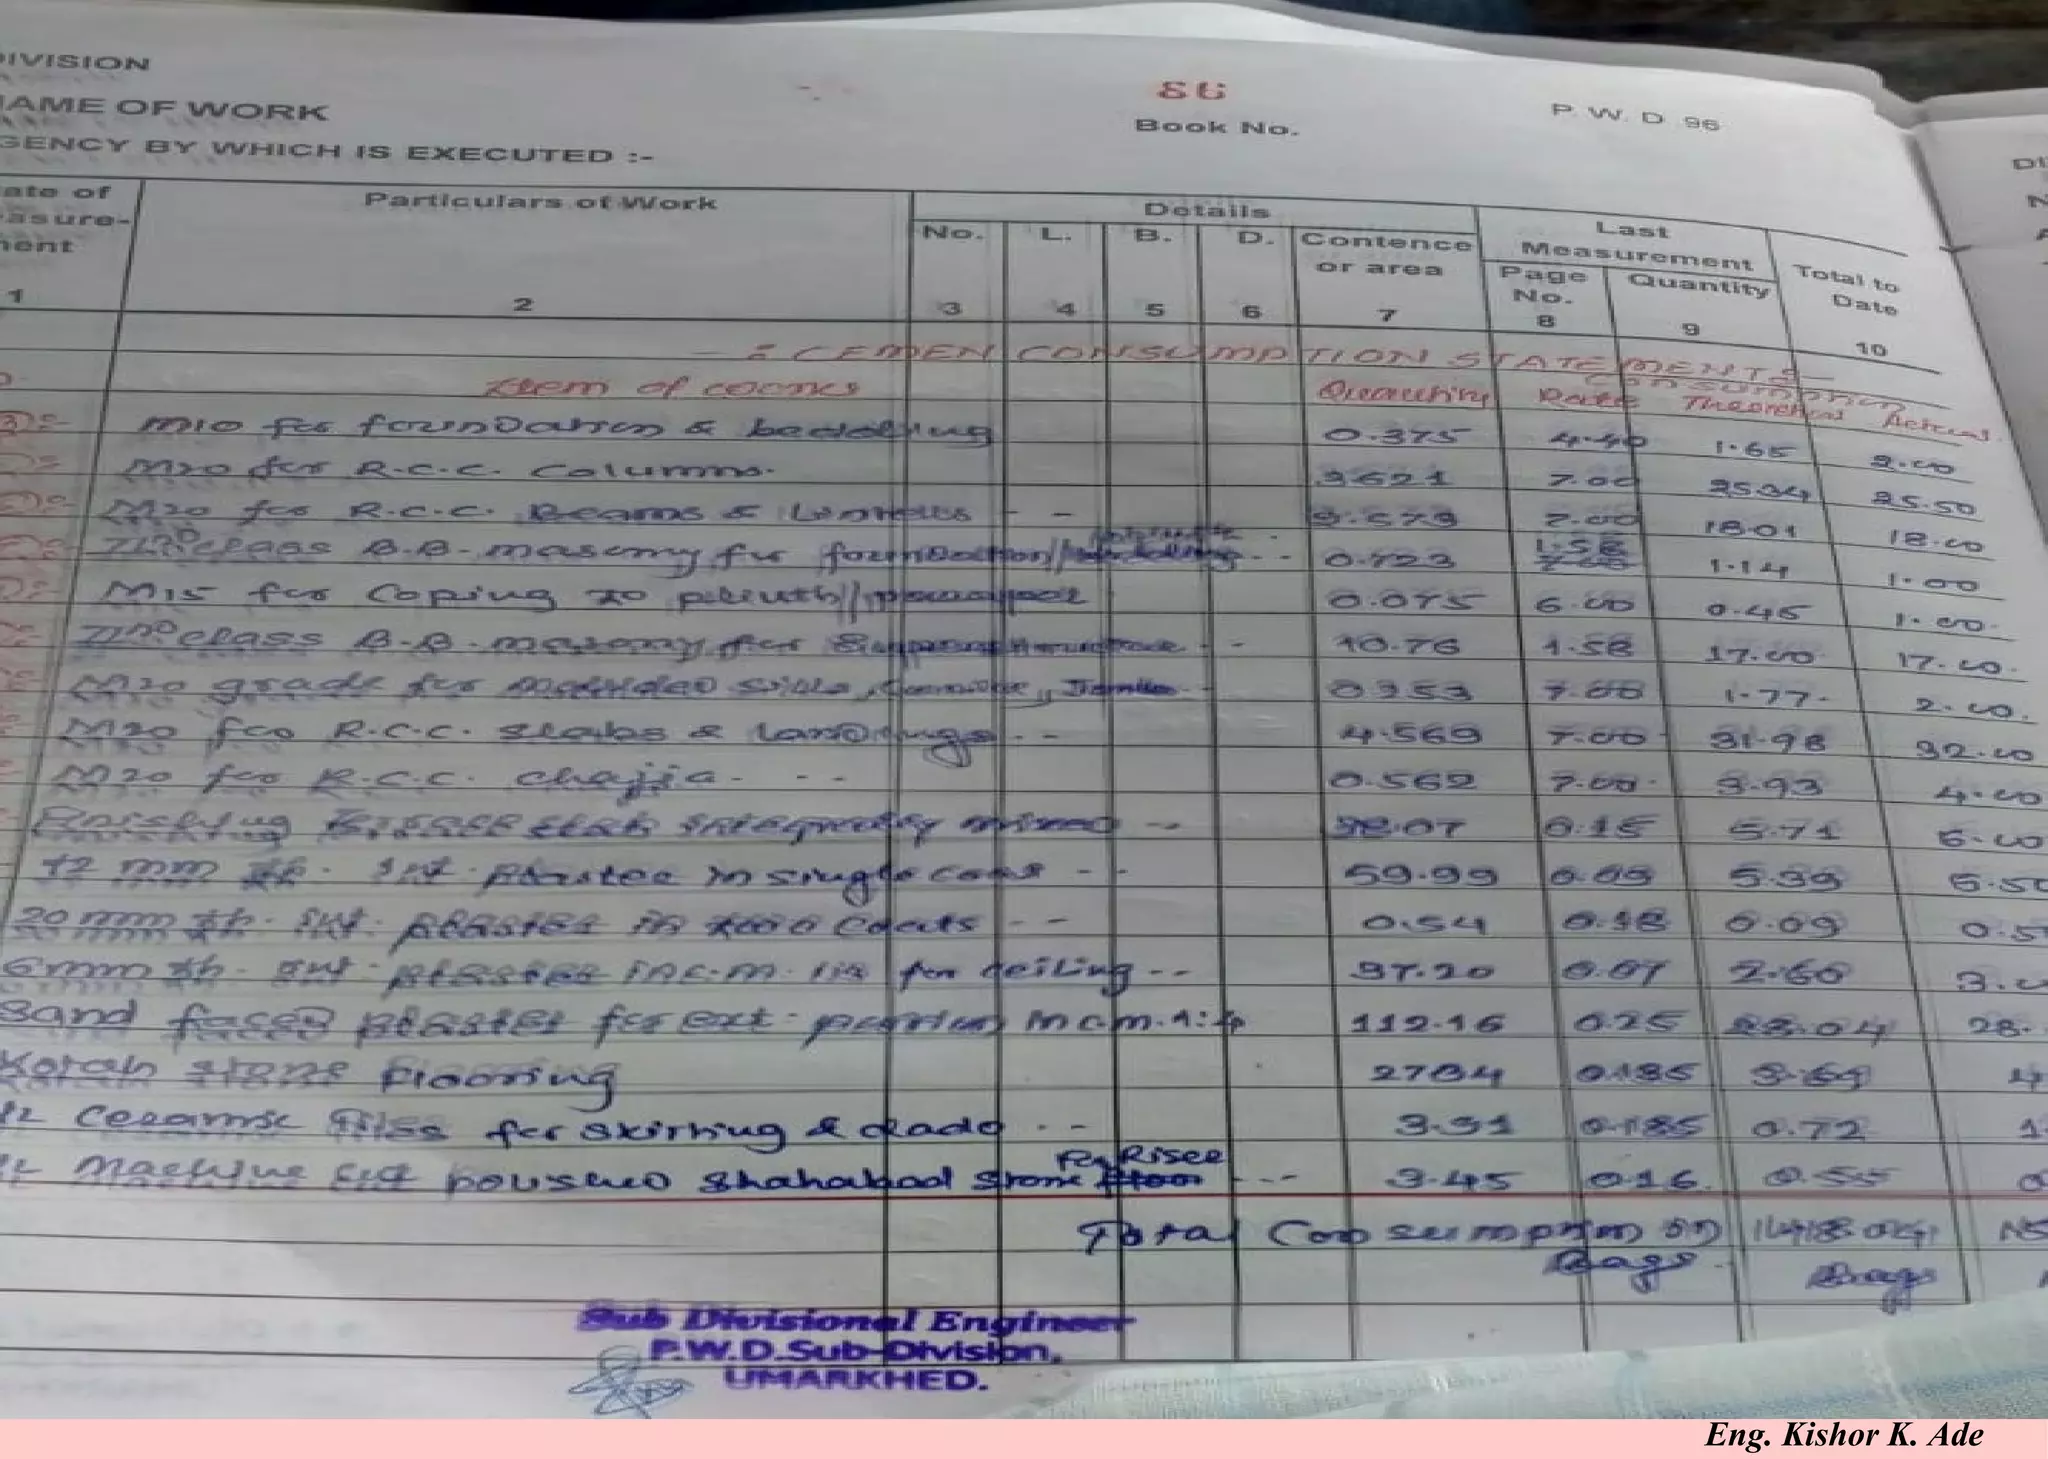 DIVISION
NAME OF WORK
AGENCY BY WHICH IS EXECUTED :-
86
Book No.
P. W. D. 96
Date of Measurement
Particulars of Work
Details
Last Measurement
Total to Date
No. L. B. D. Contence or area Page No. Quantity
1 2 3 4 5 6 7 8 9 10
-: CEMEN CONSUMPTION STATEMENTS
Item of works Quantity Rate Consumption Theoretical Actual
M10 for foundation & bedding 0.375 4.40 1.65 2.00
M20 for R.C.C. Columns. 3.621 7.00 25.34 25.50
M20 for R.C.C. Beams & Lintels - - 2.573 7.00 18.01 18.00
IInd class B.B. masonry for foundation/ - - 0.723 1.58 1.14 1.00
M15 for Coping to plinth/parapet 0.075 6.00 0.45 1.00
IInd class B.B. masonry for Superstructure - - 10.76 1.58 17.00 17.00
M20 grade for sills, Jambs - - 0.253 7.00 1.77 2.00
M20 for R.C.C. slabs & landings - - 4.569 7.00 31.98 32.00
M20 for R.C.C. chajja - - - 0.562 7.00 3.93 4.00
Finishing slab integrally mixed - - 38.07 0.15 5.71 6.00
12 mm th. int. plaster in single coat - - 59.99 0.09 5.39 5.50
20mm th. int. plaster in two coats - - 0.54 0.18 0.09 0.5
6mm th. int. plaster in c.m. 1:3 for ceiling - - 37.20 0.07 2.60 3.0
Sand faced plaster for ext. in c.m. 1:4 112.16 0.25 28.04 28.
Kotah stone Flooring 27.34 0.135 3.69 4
Ceramic Tiles for skirting & dado - - 3.91 0.185 0.72 1
Machine cut polished Shahabad Stone For Riser - - - 3.45 0.16 0.55 0
Total Consumption in Bags 148.04 Bags
Sub Divisional Engineer
P.W.D.Sub-Division,
UMARKHED.
Eng. Kishor K. Ade